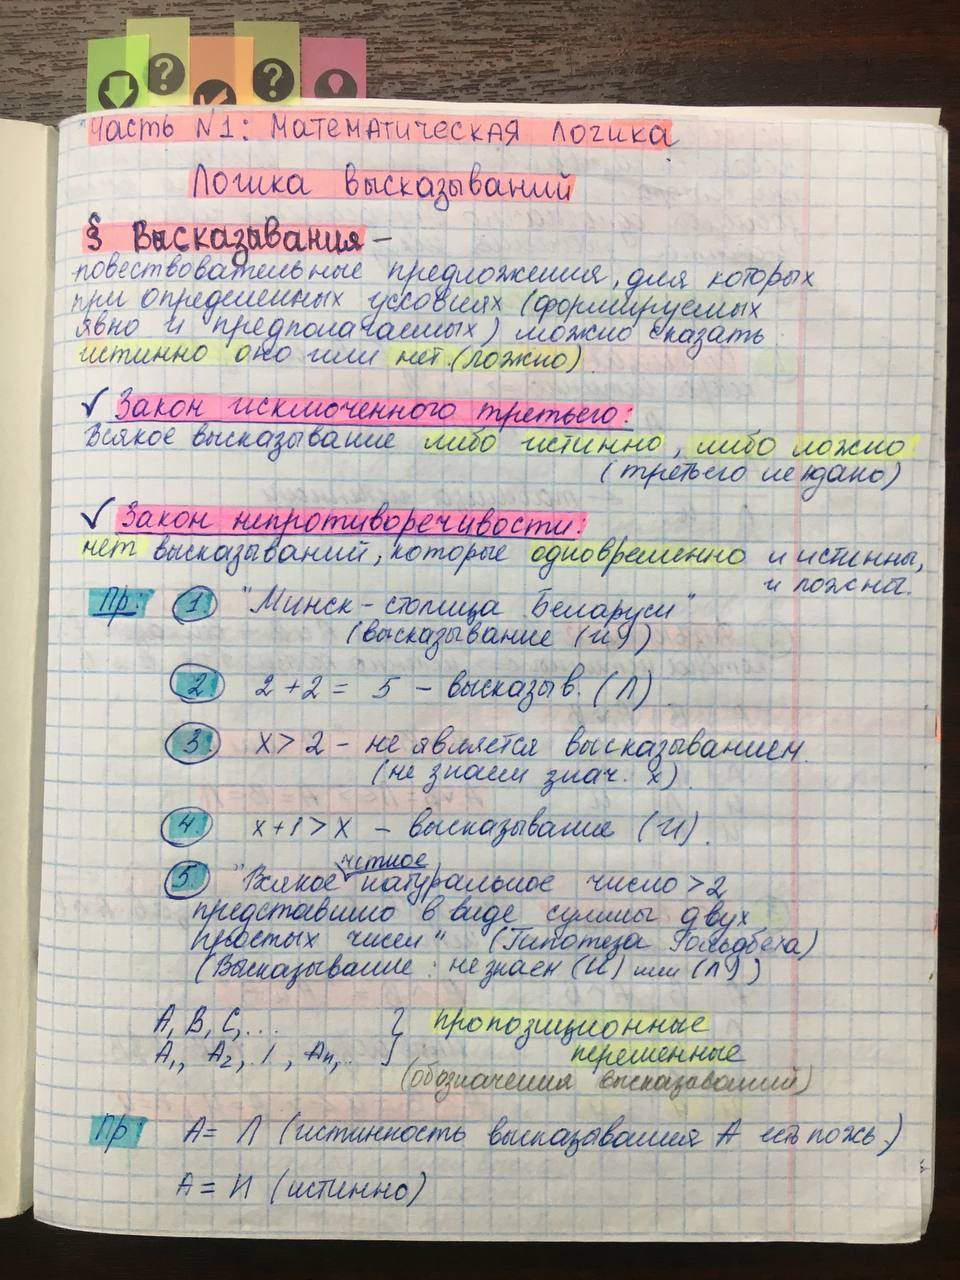 Часть №1: Математическая логика
Логика высказываний
§ Высказывания –
повествовательные предложения, для которых
при определенных условиях (формируемых
явно и предполагаемых) можно сказать
истинно оно или нет (ложно)
✓ Закон исключенного третьего:
Всякое высказывание либо истинно, либо ложно
(третьего не дано)
✓ Закон непротиворечивости:
нет высказываний, которые одновременно и истинны,
и ложны.
Пр: 1 "Минск - столица Беларуси"
(высказывание (И))
2 2 + 2 = 5 – высказыв. (Л)
3 x > 2 – не является высказыванием.
(не знаем знач. x)
4. x + 1 > x – высказывание (И)
четное
5 "Всякое натуральное число > 2
представимо в виде суммы двух
простых чисел" (Гипотеза Гольдбаха)
(Высказывание: не знаем (И) или (Л))
A, B, C, ... } пропозиционные
A₁, A₂, , Aₙ, .. переменные
(обозначения высказываний)
Пр: A = Л (истинность высказывания A есть ложь.)
A = И (истинно)